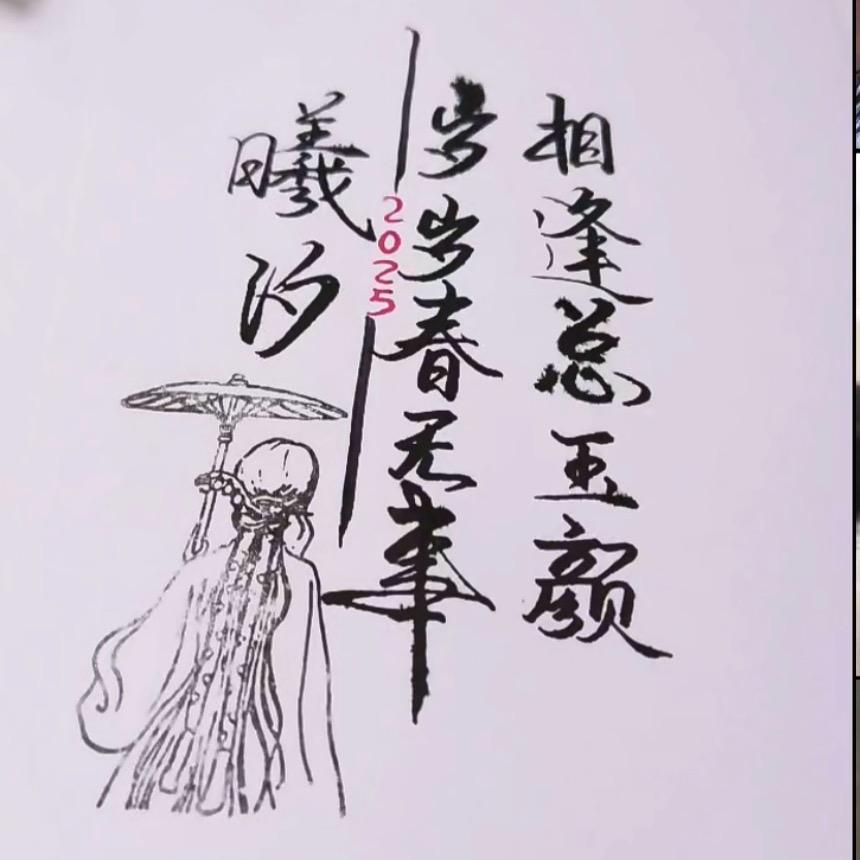 相逢总玉颜
岁岁春无事
2025
曦汐